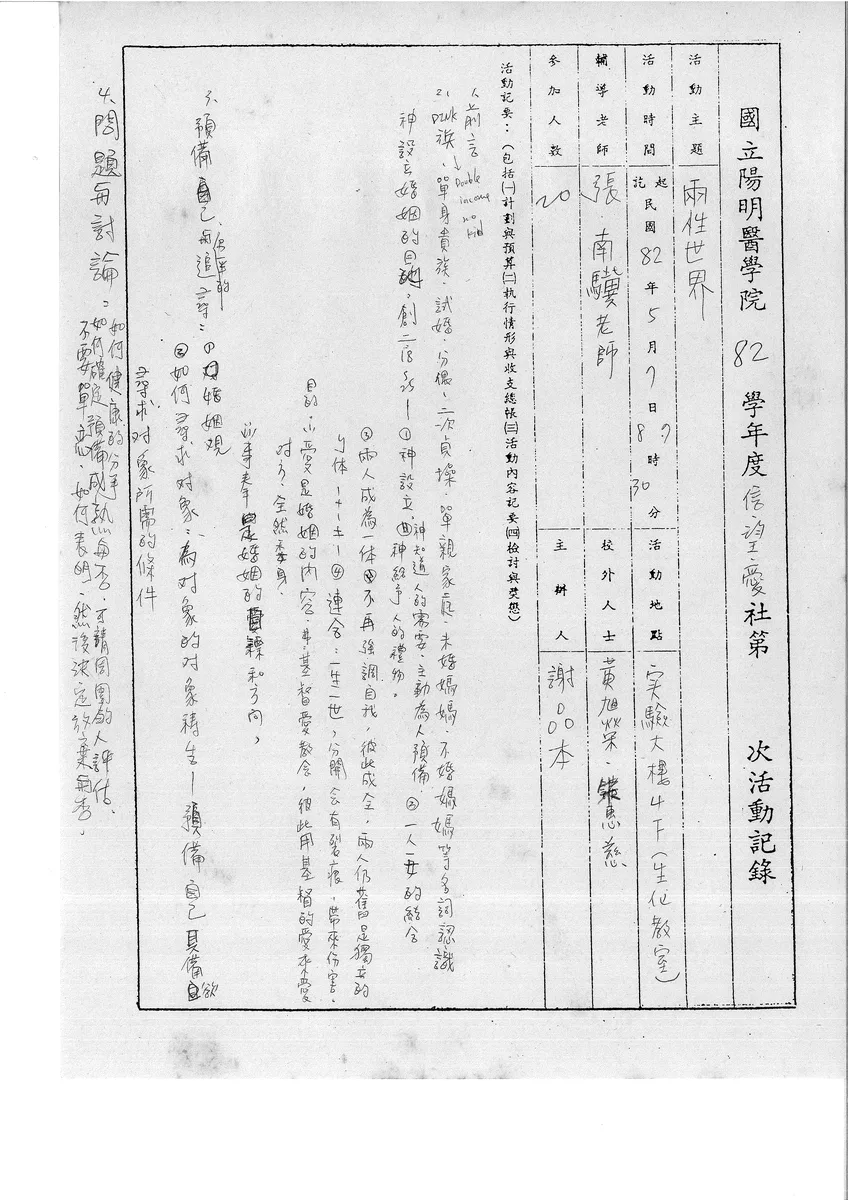 國立陽明醫學院 82 學年度信望愛社第 次活動記錄
活動主題 兩性世界
活動時間 起訖 民國 82 年 5 月 7 日 8 時 30 分 活動地點 实驗大樓4F(生化教室)
輔導老師 張南驥老師 校外人士 黃旭榮、惠慈
參加人數 20 主辦人 謝品本
活動記要：(包括㈠計劃與預算㈡執行情形與收支總帳㈢活動內容記要㈣檢討與獎懲)
1、前言
2、DINK族、單身貴族、試婚、分偶、二次貞操、單親家庭、未婚媽媽、不婚媽媽等名詞認識
Double income no kid
神設立婚姻的目的，創二18~25－①神設立、神給予人的禮物。
神知道人的需要、主動為人預備 ②一人一女的結合
③兩人成為一体 不再強調自我，彼此成全，兩人仍舊是獨立的
个体－④連合：一生一世，分開会有裂痕，帶來伤害。
目的：愛是婚姻的內容 基督愛教会，彼此用基督的愛來愛
对方，全然委身
事奉是婚姻的目標和方向，
3、預備自己與追尋：①婚姻观
②如何尋求对象：為对象的对象禱告－預備自己具備欲
尋求对象所需的條件
4、問題與討論：如何健康的分手
如何確定預備成熟與否，可請周圍的人評估、
不要單恋、如何表明，然後決定放棄與否，